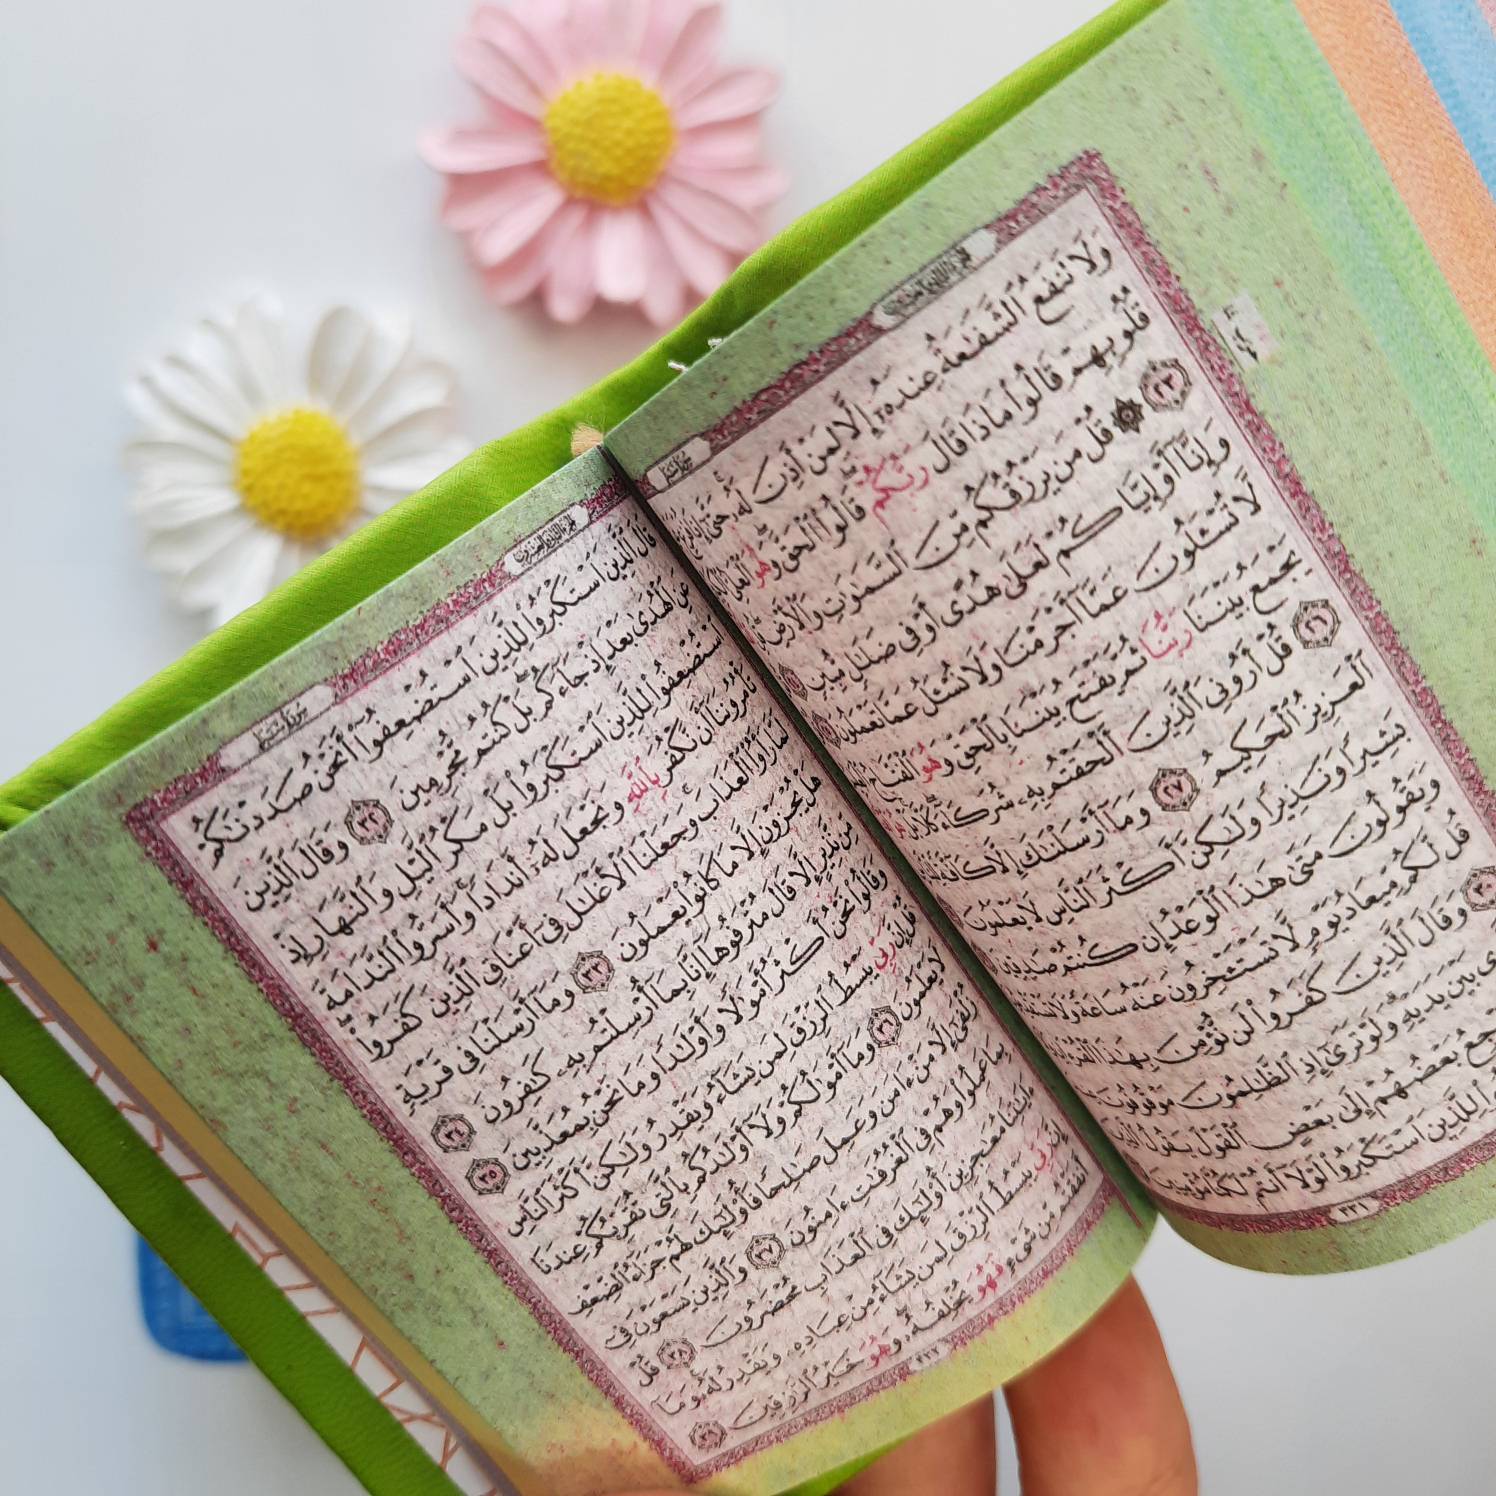 الجزء الثاني والعشرون
سورة سبإ
وَلَا تَنفَعُ ٱلشَّفَٰعَةُ عِندَهُۥٓ إِلَّا لِمَنْ أَذِنَ لَهُۥ حَتَّىٰٓ إِذَا فُزِّعَ
قُلُوبِهِمْ قَالُوا۟ مَاذَا قَالَ رَبُّكُمْ قَالُوا۟ ٱلْحَقَّ وَهُوَ ٱلْعَلِىُّ
٢٣ ۞ قُلْ مَن يَرْزُقُكُم مِّنَ ٱلسَّمَٰوَٰتِ وَٱلْأَرْضِ
وَإِنَّآ أَوْ إِيَّاكُمْ لَعَلَىٰ هُدًى أَوْ فِى ضَلَٰلٍ مُّبِينٍ
لَّا تُسْـَٔلُونَ عَمَّآ أَجْرَمْنَا وَلَا نُسْـَٔلُ عَمَّا تَعْمَلُونَ
يَجْمَعُ بَيْنَنَا رَبُّنَا ثُمَّ يَفْتَحُ بَيْنَنَا بِٱلْحَقِّ وَهُوَ ٱلْفَتَّاحُ
٢٦ قُلْ أَرُونِىَ ٱلَّذِينَ أَلْحَقْتُم بِهِۦ شُرَكَآءَ كَلَّا بَلْ هُوَ
ٱلْعَزِيزُ ٱلْحَكِيمُ ٢٧ وَمَآ أَرْسَلْنَٰكَ إِلَّا كَآفَّةً لِّلنَّاسِ
بَشِيرًا وَنَذِيرًا وَلَٰكِنَّ أَكْثَرَ ٱلنَّاسِ لَا يَعْلَمُونَ
وَيَقُولُونَ مَتَىٰ هَٰذَا ٱلْوَعْدُ إِن كُنتُمْ صَٰدِقِينَ
قُل لَّكُم مِّيعَادُ يَوْمٍ لَّا تَسْتَـْٔخِرُونَ عَنْهُ سَاعَةً وَلَا تَسْتَقْدِمُونَ
٣٠ وَقَالَ ٱلَّذِينَ كَفَرُوا۟ لَن نُّؤْمِنَ بِهَٰذَا ٱلْقُرْءَانِ
بَيْنَ يَدَيْهِ وَلَوْ تَرَىٰٓ إِذِ ٱلظَّٰلِمُونَ مَوْقُوفُونَ
بَعْضُهُمْ إِلَىٰ بَعْضٍ ٱلْقَوْلَ يَقُولُ ٱلَّذِينَ
لِلَّذِينَ ٱسْتَكْبَرُوا۟ لَوْلَآ أَنتُمْ لَكُنَّا مُؤْمِنِينَ
٤٣١
الجزء الثاني والعشرون
سورة سبإ
قَالَ ٱلَّذِينَ ٱسْتَكْبَرُوا۟ لِلَّذِينَ ٱسْتُضْعِفُوٓا۟ أَنَحْنُ صَدَدْنَٰكُمْ
عَنِ ٱلْهُدَىٰ بَعْدَ إِذْ جَآءَكُم بَلْ كُنتُم مُّجْرِمِينَ ٣٢ وَقَالَ ٱلَّذِينَ
ٱسْتُضْعِفُوا۟ لِلَّذِينَ ٱسْتَكْبَرُوا۟ بَلْ مَكْرُ ٱلَّيْلِ وَٱلنَّهَارِ إِذْ
تَأْمُرُونَنَآ أَن نَّكْفُرَ بِٱللَّهِ وَنَجْعَلَ لَهُۥٓ أَندَادًا وَأَسَرُّوا۟ ٱلنَّدَامَةَ
لَمَّا رَأَوُا۟ ٱلْعَذَابَ وَجَعَلْنَا ٱلْأَغْلَٰلَ فِىٓ أَعْنَاقِ ٱلَّذِينَ كَفَرُوا۟
هَلْ يُجْزَوْنَ إِلَّا مَا كَانُوا۟ يَعْمَلُونَ ٣٣ وَمَآ أَرْسَلْنَا فِى قَرْيَةٍ
مِّن نَّذِيرٍ إِلَّا قَالَ مُتْرَفُوهَآ إِنَّا بِمَآ أُرْسِلْتُم بِهِۦ كَٰفِرُونَ ٣٤
وَقَالُوا۟ نَحْنُ أَكْثَرُ أَمْوَٰلًا وَأَوْلَٰدًا وَمَا نَحْنُ بِمُعَذَّبِينَ ٣٥
قُلْ إِنَّ رَبِّى يَبْسُطُ ٱلرِّزْقَ لِمَن يَشَآءُ وَيَقْدِرُ وَلَٰكِنَّ أَكْثَرَ ٱلنَّاسِ
لَا يَعْلَمُونَ ٣٦ وَمَآ أَمْوَٰلُكُمْ وَلَآ أَوْلَٰدُكُم بِٱلَّتِى تُقَرِّبُكُمْ عِندَنَا
زُلْفَىٰٓ إِلَّا مَنْ ءَامَنَ وَعَمِلَ صَٰلِحًا فَأُو۟لَٰٓئِكَ لَهُمْ جَزَآءُ ٱلضِّعْفِ
بِمَا عَمِلُوا۟ وَهُمْ فِى ٱلْغُرُفَٰتِ ءَامِنُونَ ٣٧ وَٱلَّذِينَ يَسْعَوْنَ فِىٓ
ءَايَٰتِنَا مُعَٰجِزِينَ أُو۟لَٰٓئِكَ فِى ٱلْعَذَابِ مُحْضَرُونَ ٣٨ قُلْ
إِنَّ رَبِّى يَبْسُطُ ٱلرِّزْقَ لِمَن يَشَآءُ مِنْ عِبَادِهِۦ وَيَقْدِرُ لَهُۥ وَمَآ
أَنفَقْتُم مِّن شَىْءٍ فَهُوَ يُخْلِفُهُۥ وَهُوَ خَيْرُ ٱلرَّٰزِقِينَ ٣٩
٤٣٢